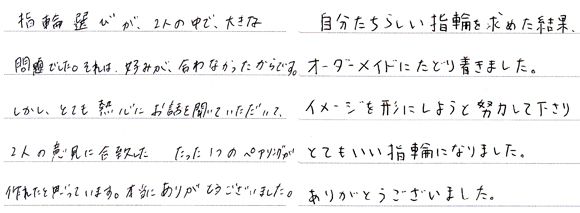 指輪選びが、2人の中で、大きな
問題でした。それは、好みが、合わなかったからです。
しかし、とても熱心にお話を聞いていただいて、
2人の意見に合致した たった1つのペアリングが
作れたと思っています。本当にありがとうございました。
自分たちらしい指輪を求めた結果、
オーダーメイドにたどり着きました。
イメージを形にしようと努力して下さり
とてもいい指輪になりました。
ありがとうございました。